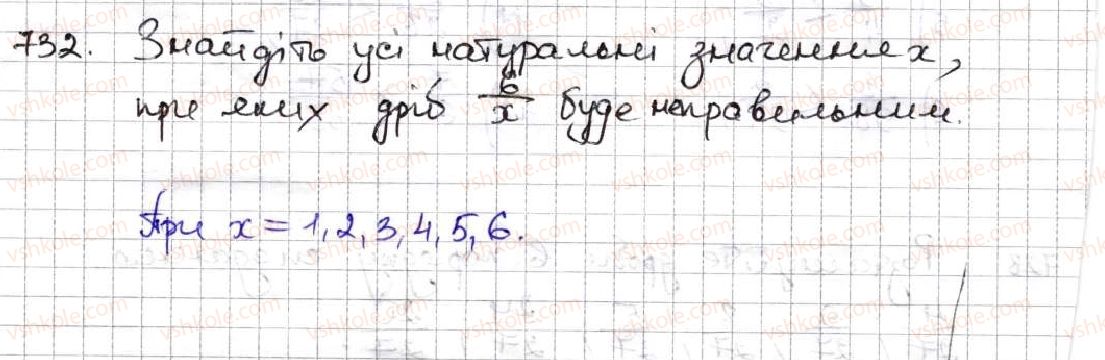 732. Знайдіть усі натуральні значення x,
при яких дріб 6/x буде неправильним.
При x = 1, 2, 3, 4, 5, 6.